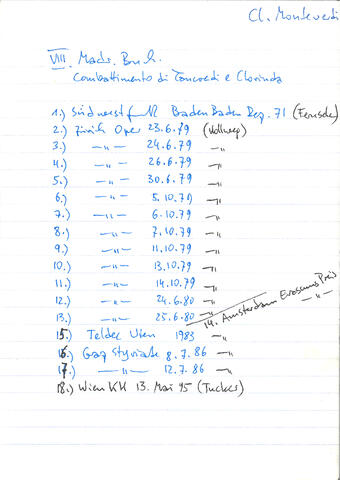 Cl. Monteverdi
VIII. Madr. Buch.
Combattimento di Tancredi e Clorinda
1.) Südwestfunk Baden Baden Reg. 71 (Fernseh)
2.) Zürich Oper 23.6.79 (Vollweg)
3.) —"— 24.6.79 —"
4.) —"— 26.6.79 —"
5.) —"— 30.6.79 —"
6.) —"— 5.10.79 —"
7.) —"— 6.10.79 —"
8.) —"— 7.10.79 —"
9.) —"— 11.10.79 —"
10.) —"— 13.10.79 —"
11.) —"— 14.10.79 —"
12.) —"— 24.6.80 —"
13.) —"— 25.6.80 —"
14. Amsterdam Erasmus Preis —"—
15.) Teldec Wien 1983 —"
16.) Graz Styriarte 8.7.86 —"
17.) —"— 12.7.86 —"
18.) Wien KH 13. Mai 95 (Tucker)